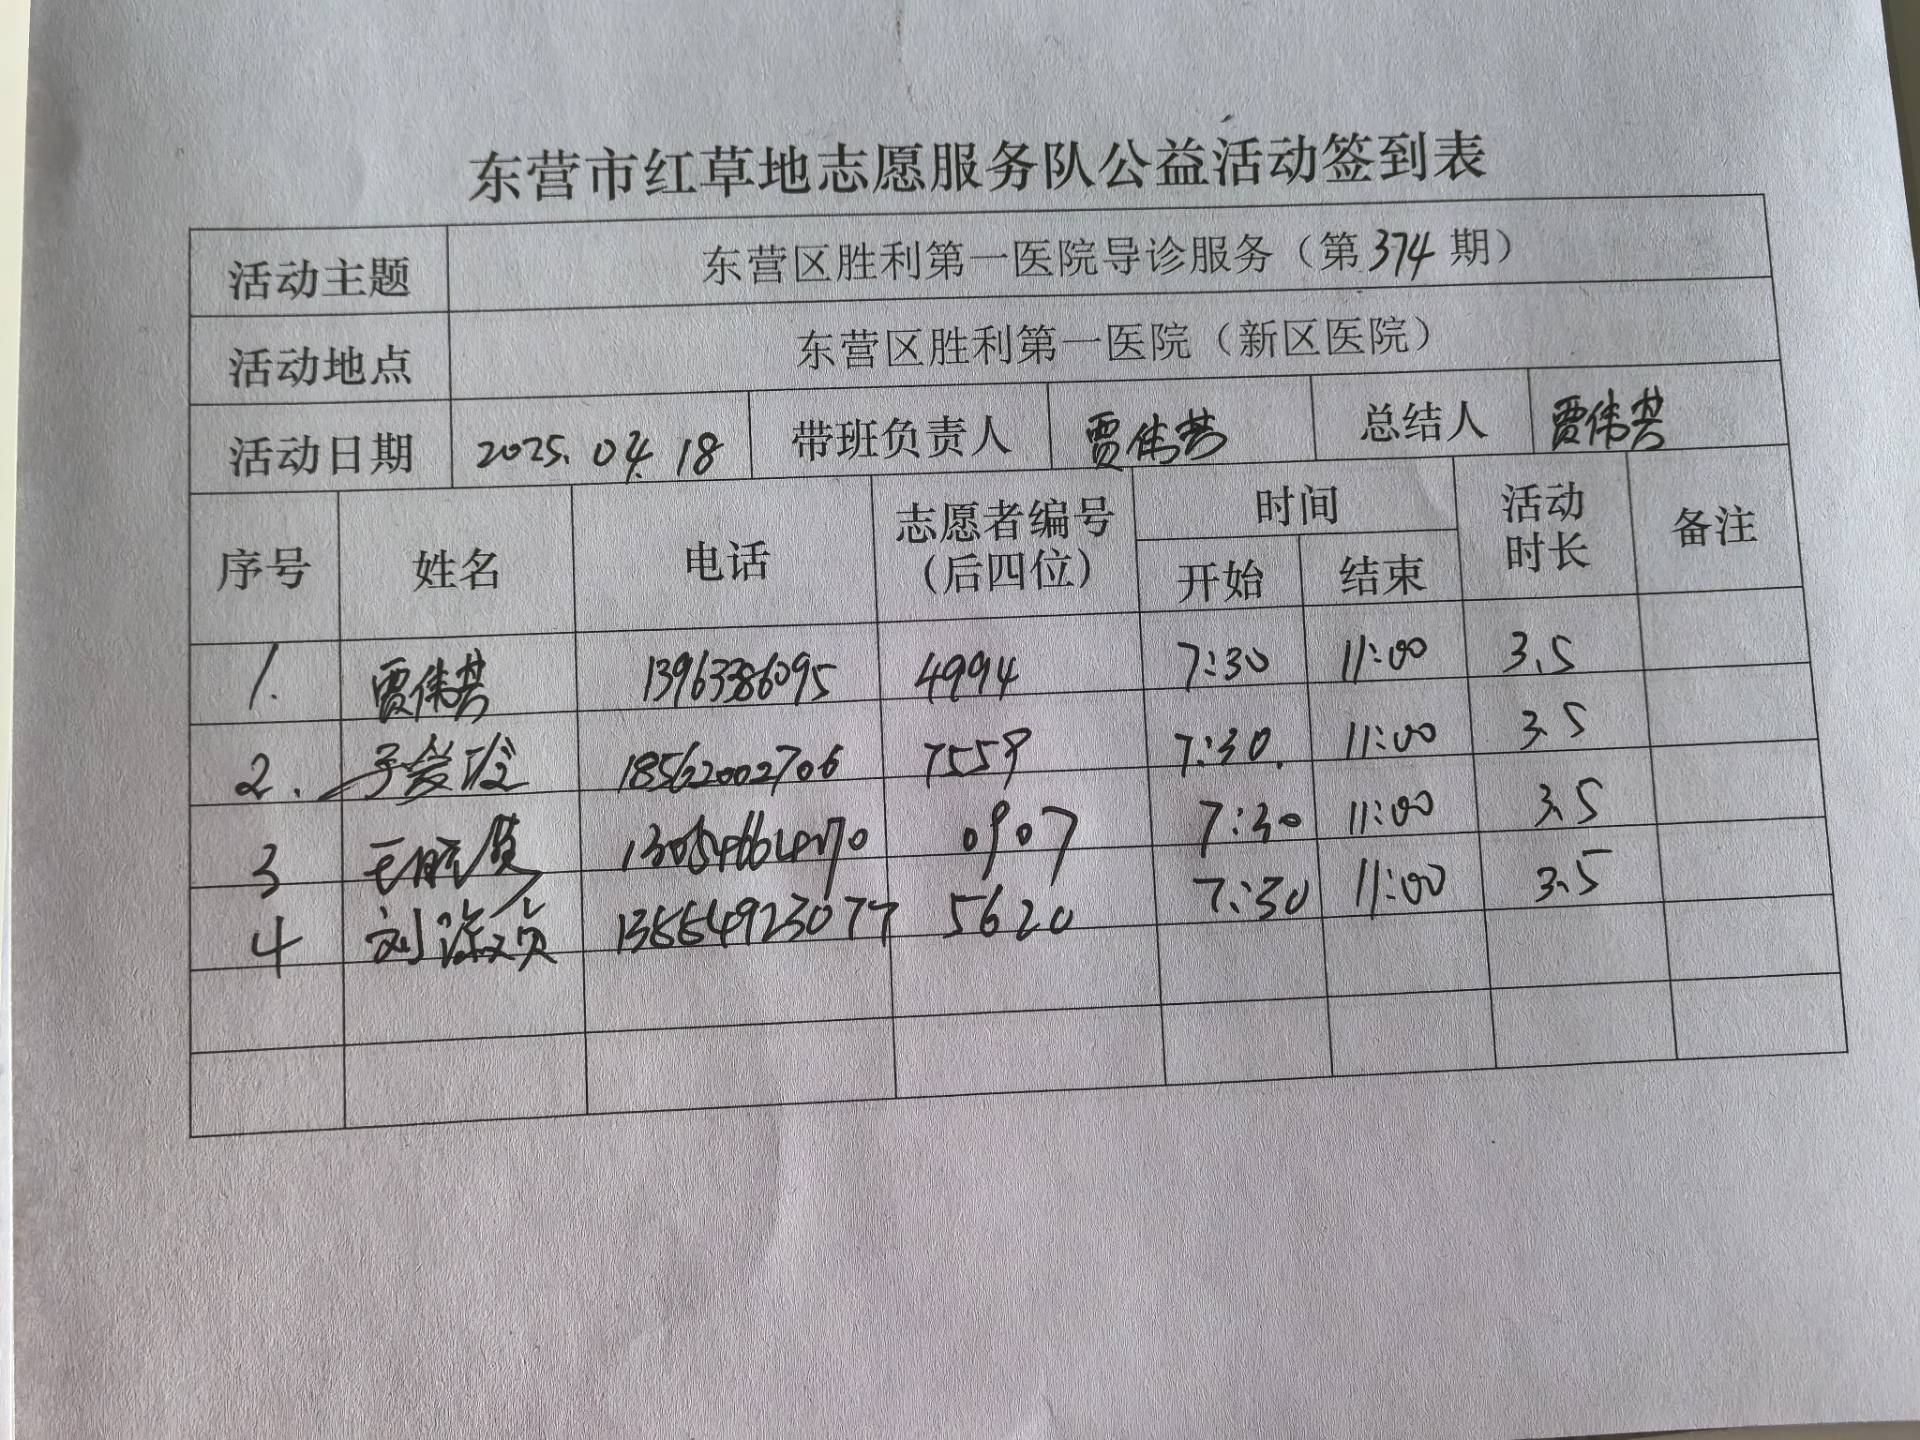 东营市红草地志愿服务队公益活动签到表
活动主题 东营区胜利第一医院导诊服务（第374期）
活动地点 东营区胜利第一医院（新区医院）
活动日期 2025.04.18 带班负责人 贾伟 总结人 贾伟
序号 姓名 电话 志愿者编号（后四位） 时间 开始 结束 活动时长 备注
1. 贾伟 13963386095 4994 7:30 11:00 3.5
2. 18562002706 7559 7:30. 11:00 3.5
3 0907 7:30 11:00 3.5
4 刘 5620 7:30 11:00 3.5